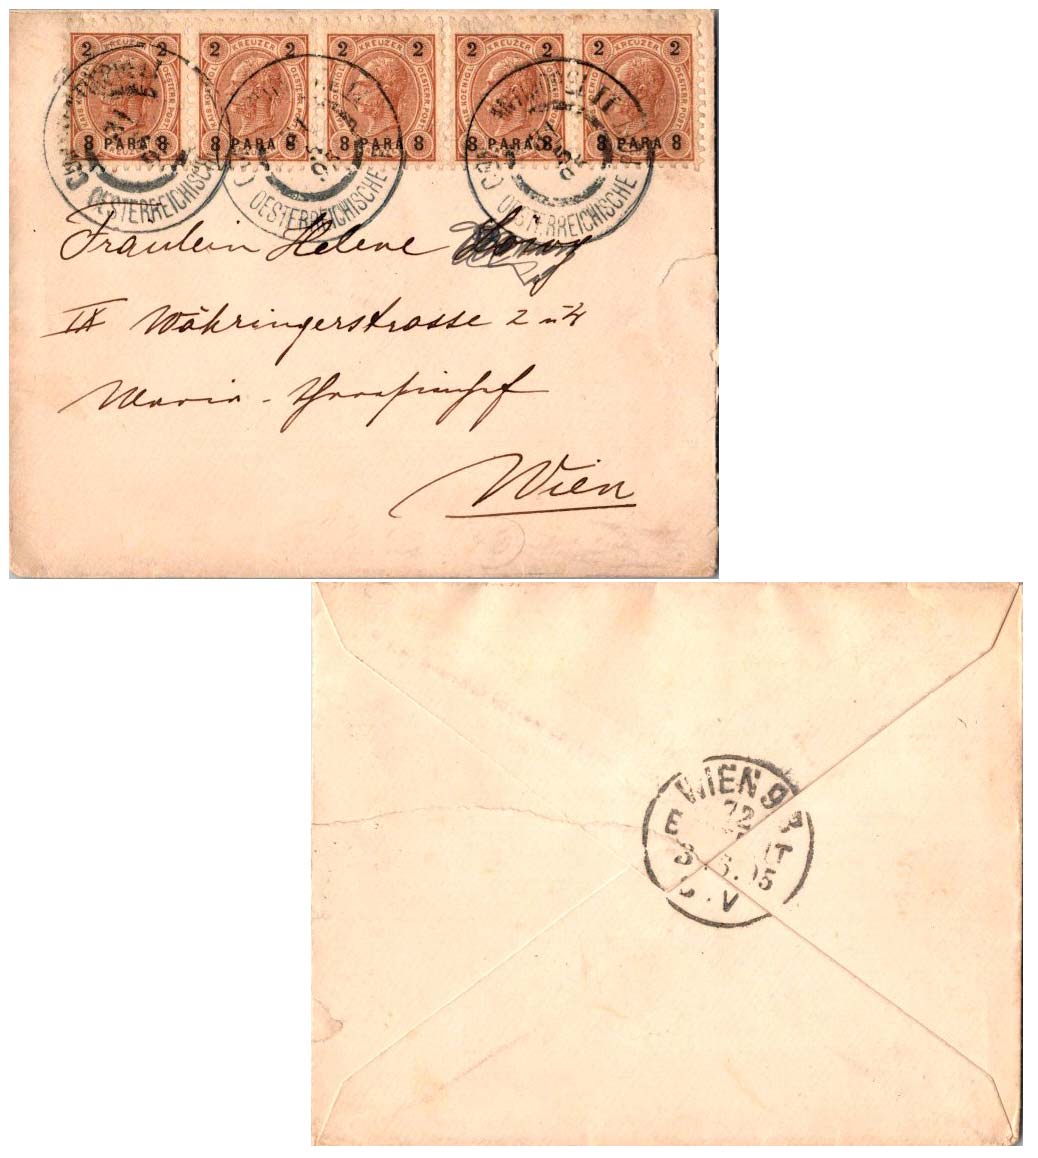 2 KREUZER 2 2 KREUZER 2 2 KREUZER 2 2 KREUZER 2 2 KREUZER 2
KAIS. KOENIGL. OESTERR. POST
8 PARA 8 8 PARA 8 8 PARA 8 8 PARA 8 8 PARA 8
CONSTANTINOPEL II
OESTERREICHISCHE
OESTERREICHISCHE
OESTERREICHISCHE
Fräulein Helene
IX Währingerstrasse 2 u 4
Maria-Theresienhof
Wien
WIEN 9
72
BESTELLT
5.95
V